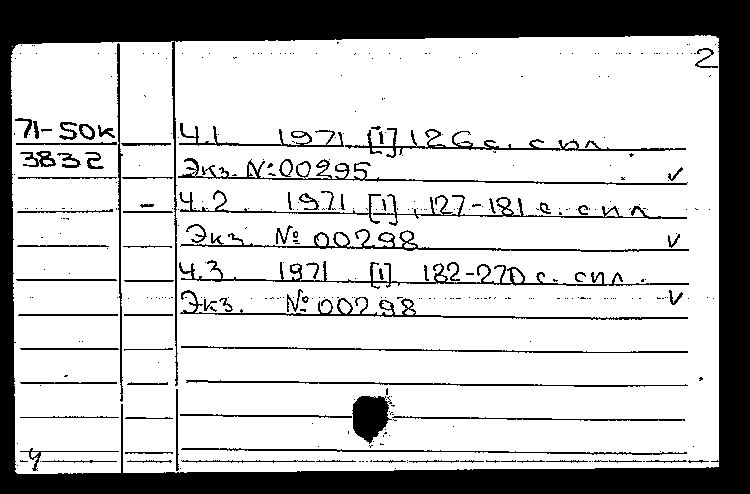 2
71-50к Ч.1 1971 [1], 126 с. с ил.
3832 Экз. №00295 ✓
- Ч.2. 1971. [1], 127-181 с. с ил
Экз. № 00298 ✓
Ч.3. 1971 [1] 182-270 с. с ил.
Экз. № 00298 ✓